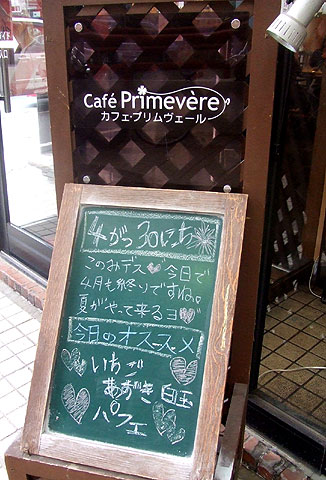 Café Primevère
カフェ・プリムヴェール
4がつ30にち
このみデス♡今日で
4月も終りですね。
夏がやって来るヨ♡
今日のオススメ
いちご
あずき白玉
パフェ